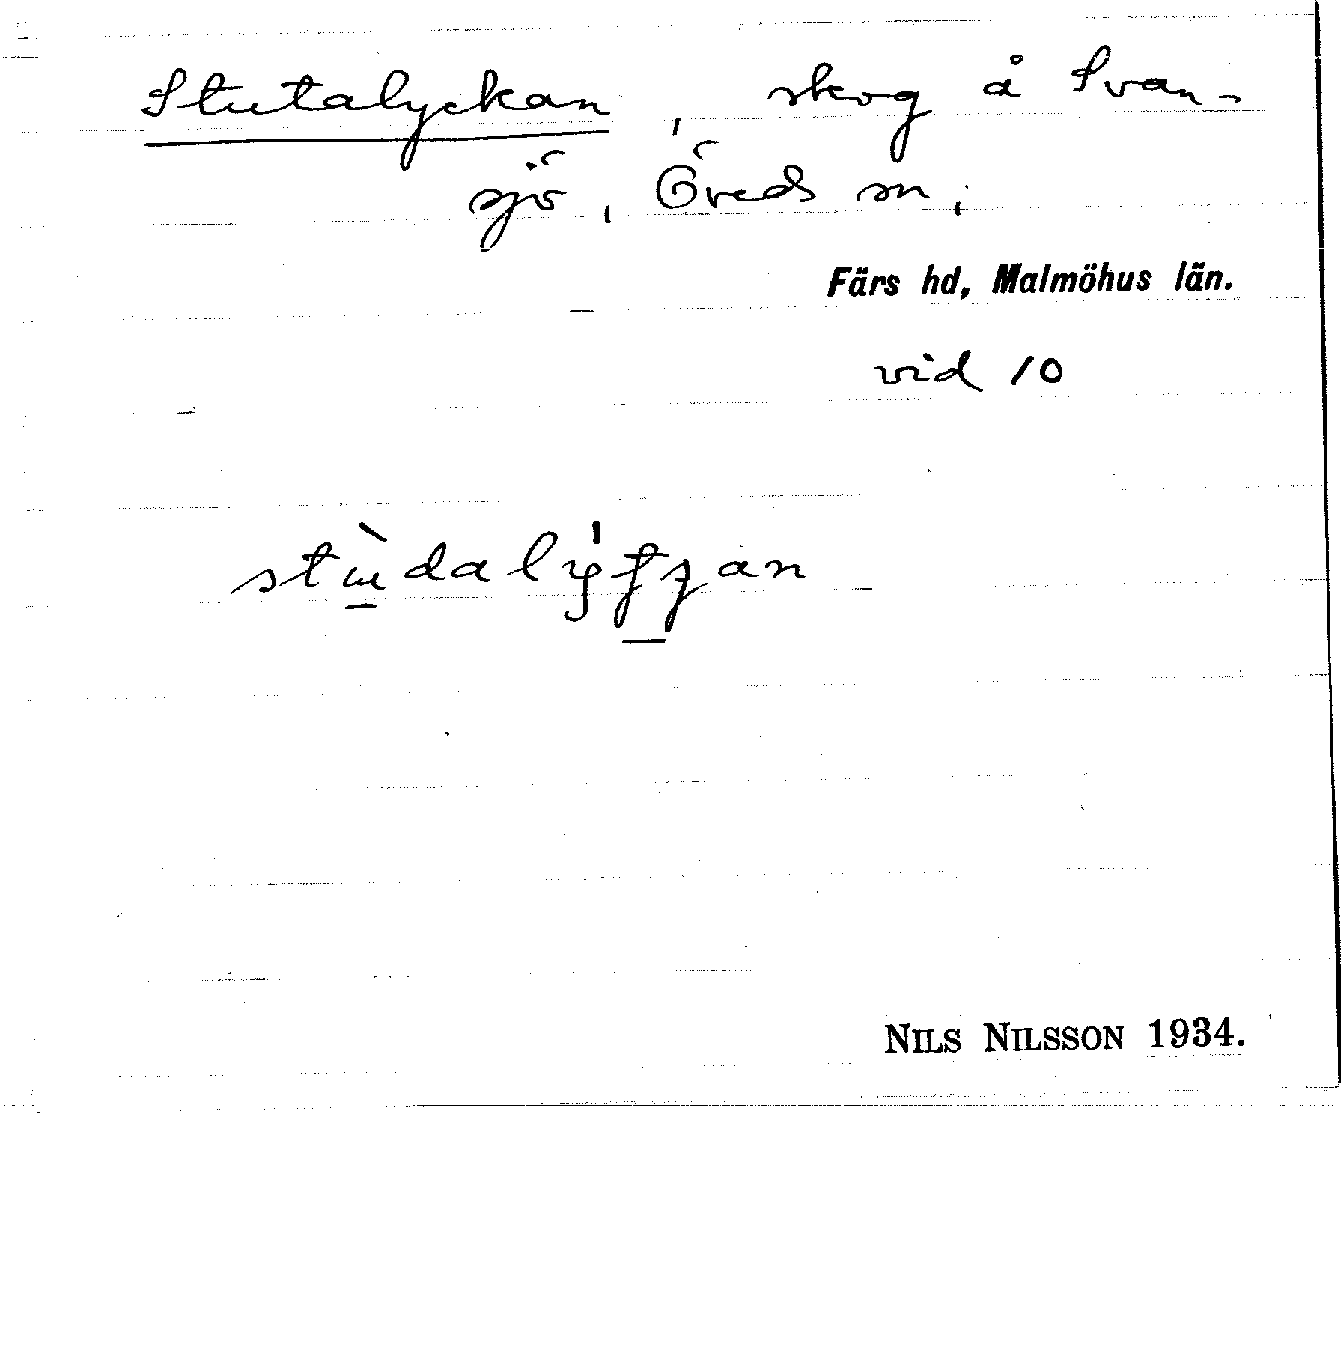 Stutalyckan, skog å Svan-
sjö, Öveds sn,
Färs hd, Malmöhus län.
vid 10
NILS NILSSON 1934.